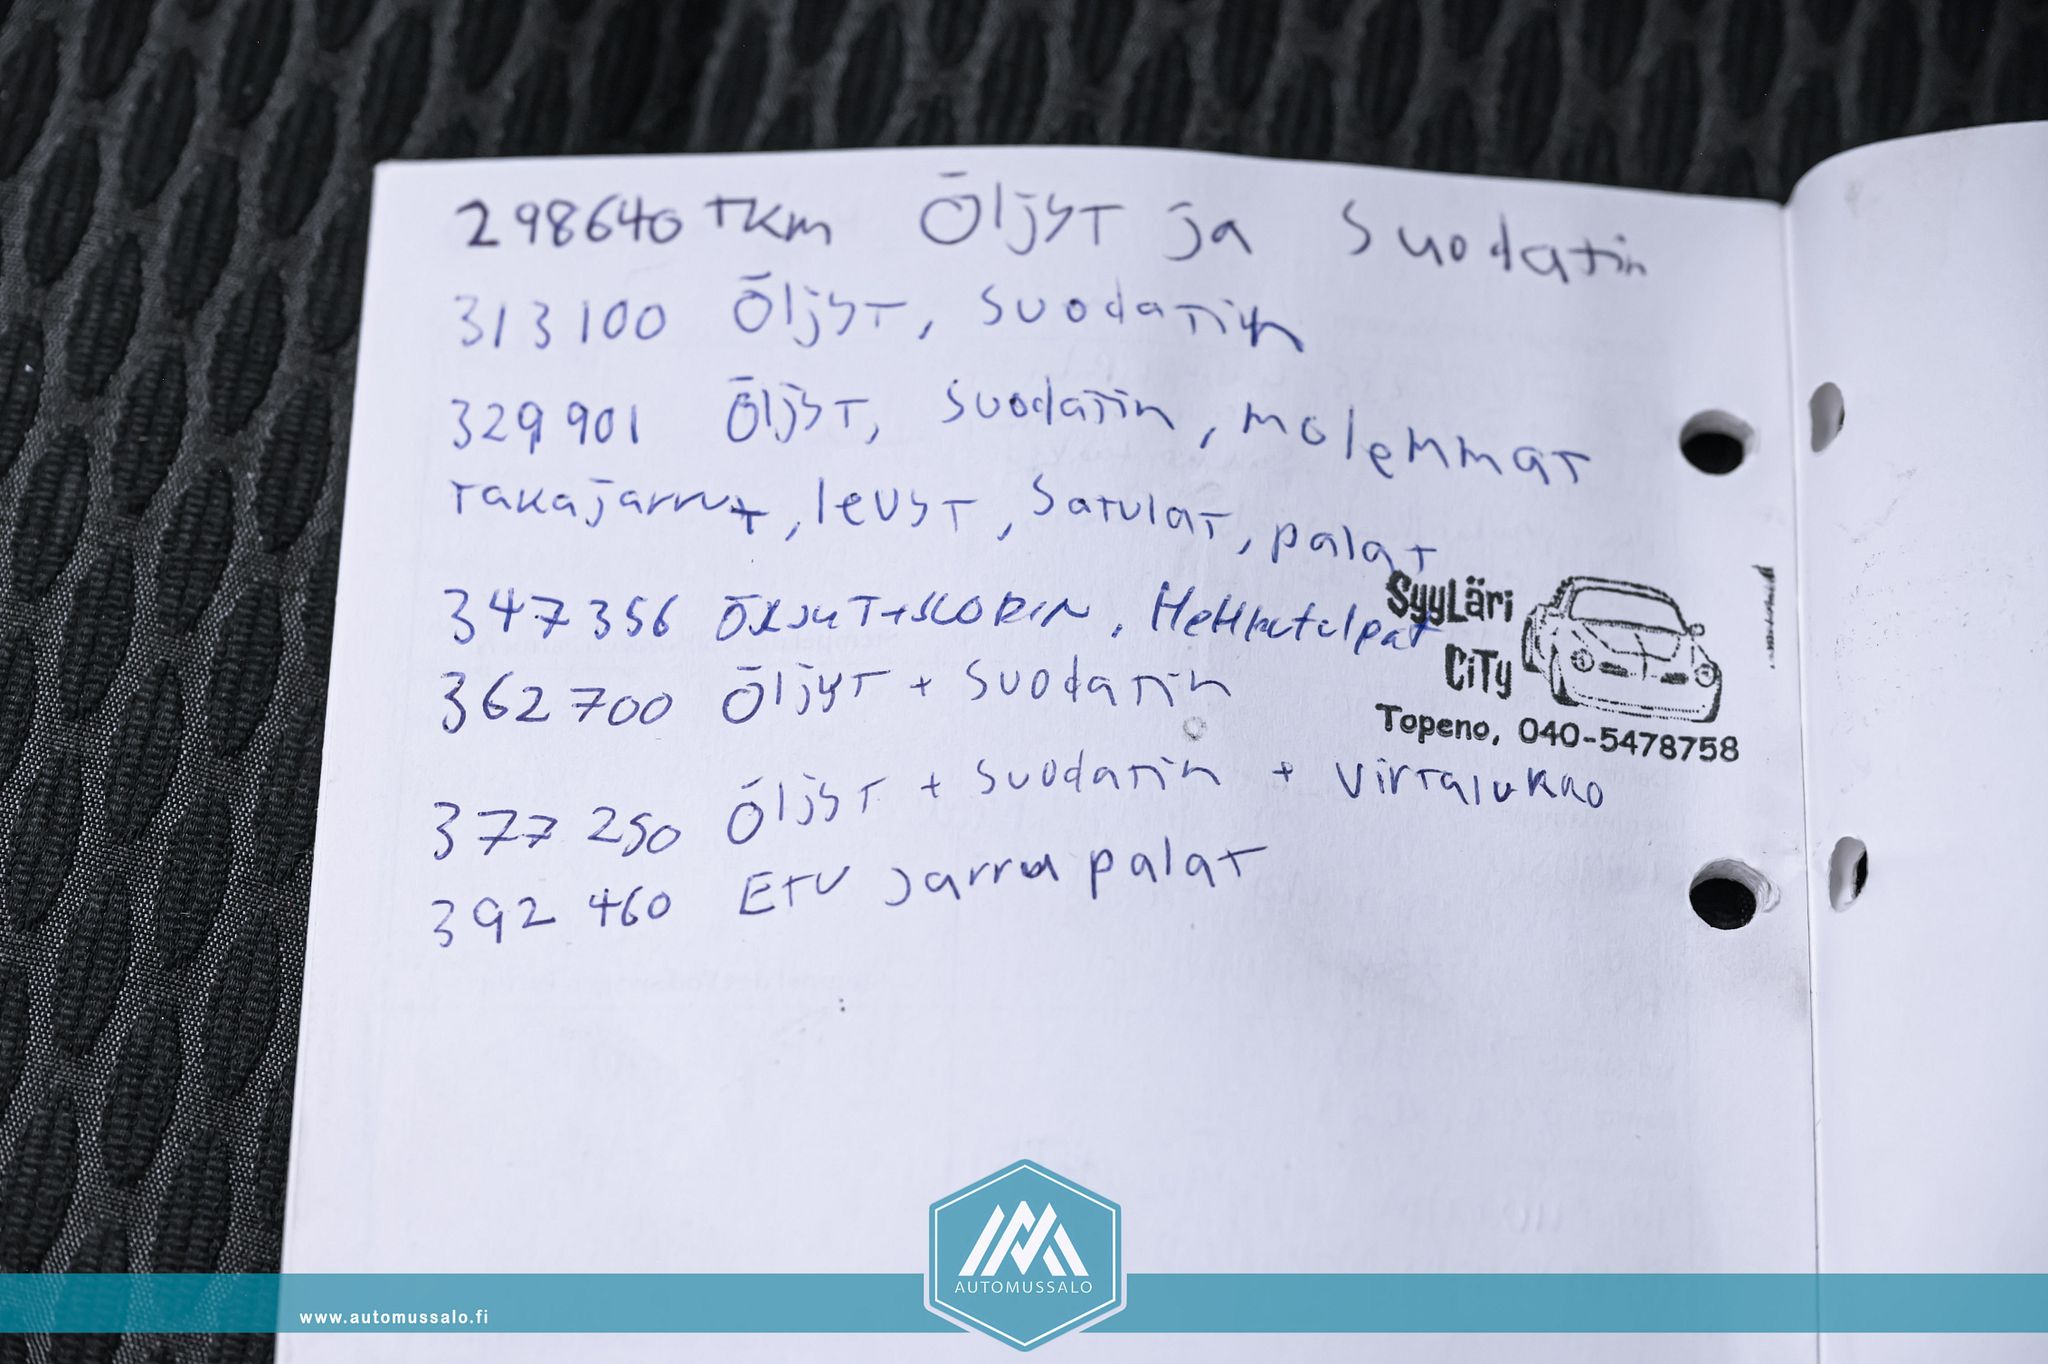 298640 TKM Öljyt ja Suodatin
313100 Öljyt, suodatin
329901 Öljyt, suodatin, molemmat
takajarrut, levyt, satulat, palat
347356 Hehkutulpat
362700 Öljyt + suodatin
377250 Öljyt + suodatin + virtalukko
392460 Etu jarru palat
SyyLäri
CiTy
Topeno, 040-5478758
AUTOMUSSALO
www.automussalo.fi